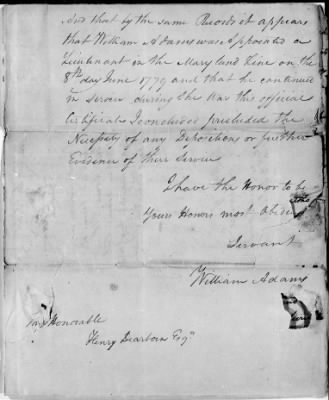 And that by the same Records it appears
that William Adams was Appointed a
Lieutenant in the Maryland Line on the
8th day June 1779 and that he continued
in Service during the War this official
Certificate I conceived precluded the
Necessity of any Depositions or further
Evidence of their Service
I have the Honor to be
Yours Honors most Obedient
Servant
William Adams
Honorable
Henry Dearborn Esqr